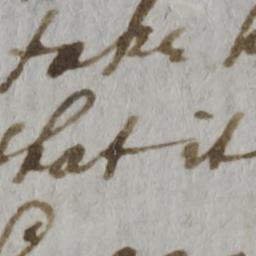 take
that it